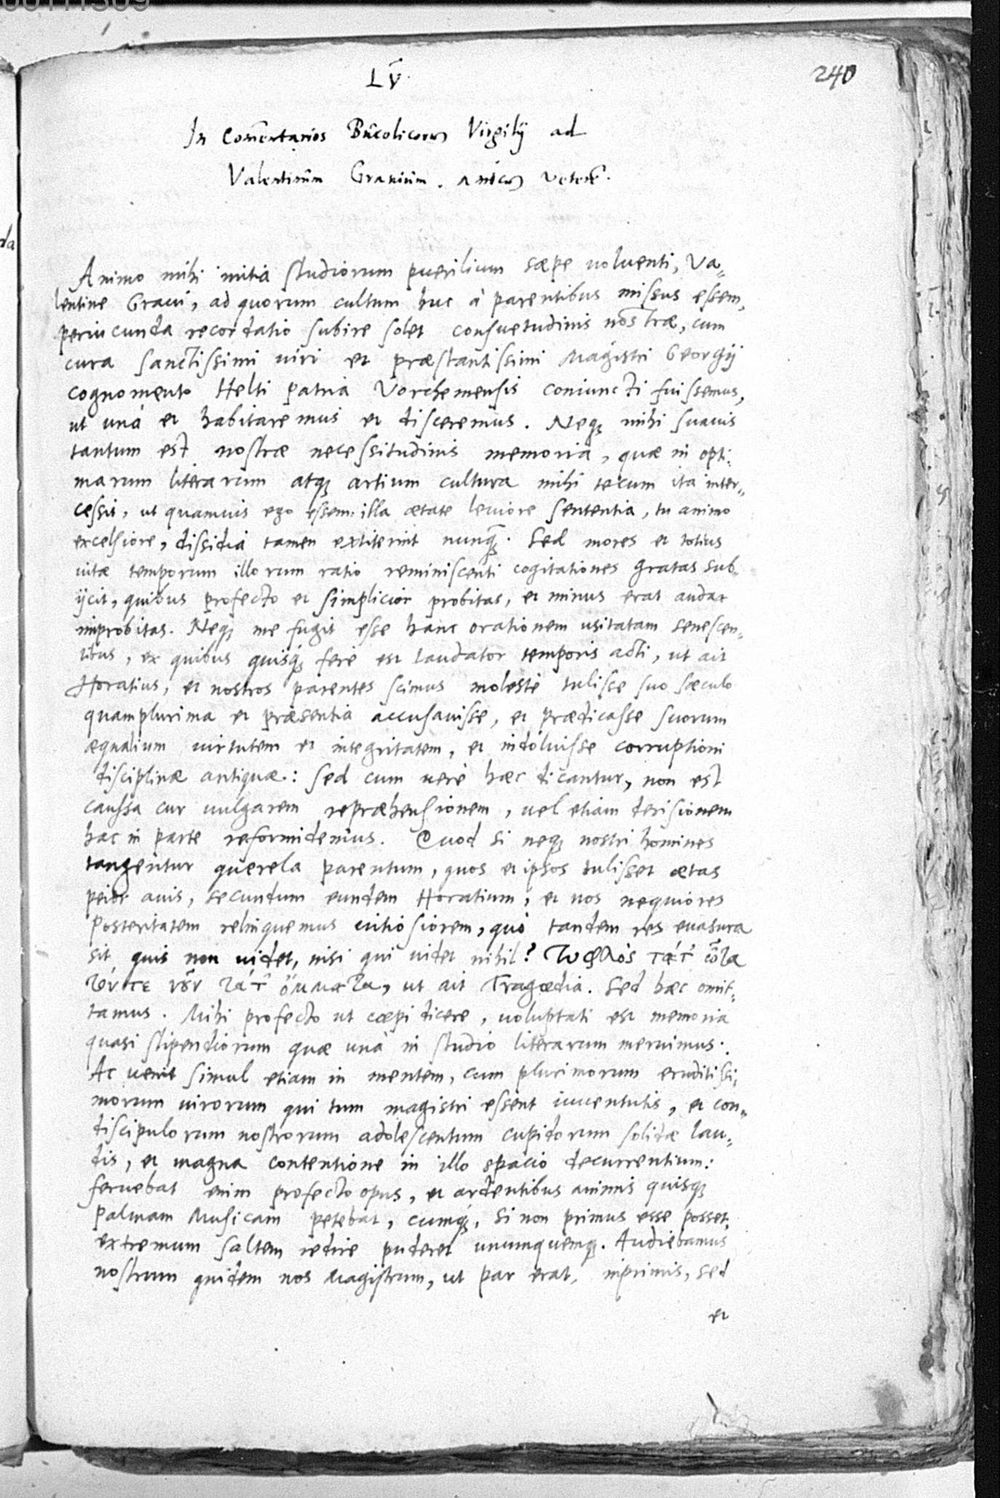 240
LV.
In Com̃entarios Bucolicorum Virgilij ad
Valentinũm Gravium. amicum veterẽ.
Animo mihi initia studiorum puerilium sæpe voluenti, Va-
lentine Graui, ad quorum cultum huc à parentibus missus essem,
periucunda recordatio subire solet consuetudinis nostræ, cum
cura sanctissimi viri et præstantissimi Magistri Georgij
cognomento Helti patria Vorchemensis coniuncti fuissemus,
ut unà et habitaremus et disceremus. Neq; mihi suauis
tantum est nostræ necessitudinis memoria, quæ in opti-
marum literarum atq; artium cultura mihi tecum ita inter-
cessit, ut quamuis ego essem illa ætate leuiore sententia, tu animo
excelsiore, dissidia tamen extiterint nunq̃;. Sed mores et totius
uitæ temporum illorum ratio reminiscenti cogitationes gratas sub-
ijcit, quibus profecto et simplicior probitas, et minus erat audax
improbitas. Neq; me fugit esse hanc orationem usitatam senescen-
tibus, ex quibus quisq; ferè est laudator temporis acti, ut ait
Horatius, et nostros parentes scimus molestè tulisse suo sæculo
quamplurima et præsentia accusauisse, et prædicasse suorum
æqualium virtutem et integritatem, et indoluisse corruptioni
disciplinæ antiquæ: sed cum uerè hæc dicantur, non est
caussa cur uulgarem repræhensionem, uel etiam derisionem
hac in parte reformidemus. Quod si neq; nostri homines
tangentur querela parentum, quos et ipsos tulisset ætas
peior auis, secundum eundem Horatium, et nos nequiores
Posteritatem relinquemus uitiosiorem, quò tandem res euasura
sit, quis non uidet, nisi qui uidet nihil? Τυφλὸς τά τ' ὦτα
τόν τε νοῦν τά τ' ὄμματα, ut ait Tragœdia. Sed hæc omit-
tamus. Mihi profecto ut cœpi dicere, uoluptati est memoria
quasi stipendiorum quæ unà in studio literarum meruimus.
Ac uenit simul etiam in mentem, cum plurimorum eruditissi-
morum uirorum qui tum magistri essent iuuentutis, et con-
discipulorum nostrorum adolescentum cupidorum solidæ lau-
dis, et magna contentione in illo spacio decurrentium:
feruebat enim profecto opus, et ardentibus animis quisq;
palmam Musicam petebat, cumq;, si non primus esse posset,
extremum saltem redire puderet unumquemq;. Audiebamus
nostrum quidem nos Magistrum, ut par erat, inprimis, sed
et